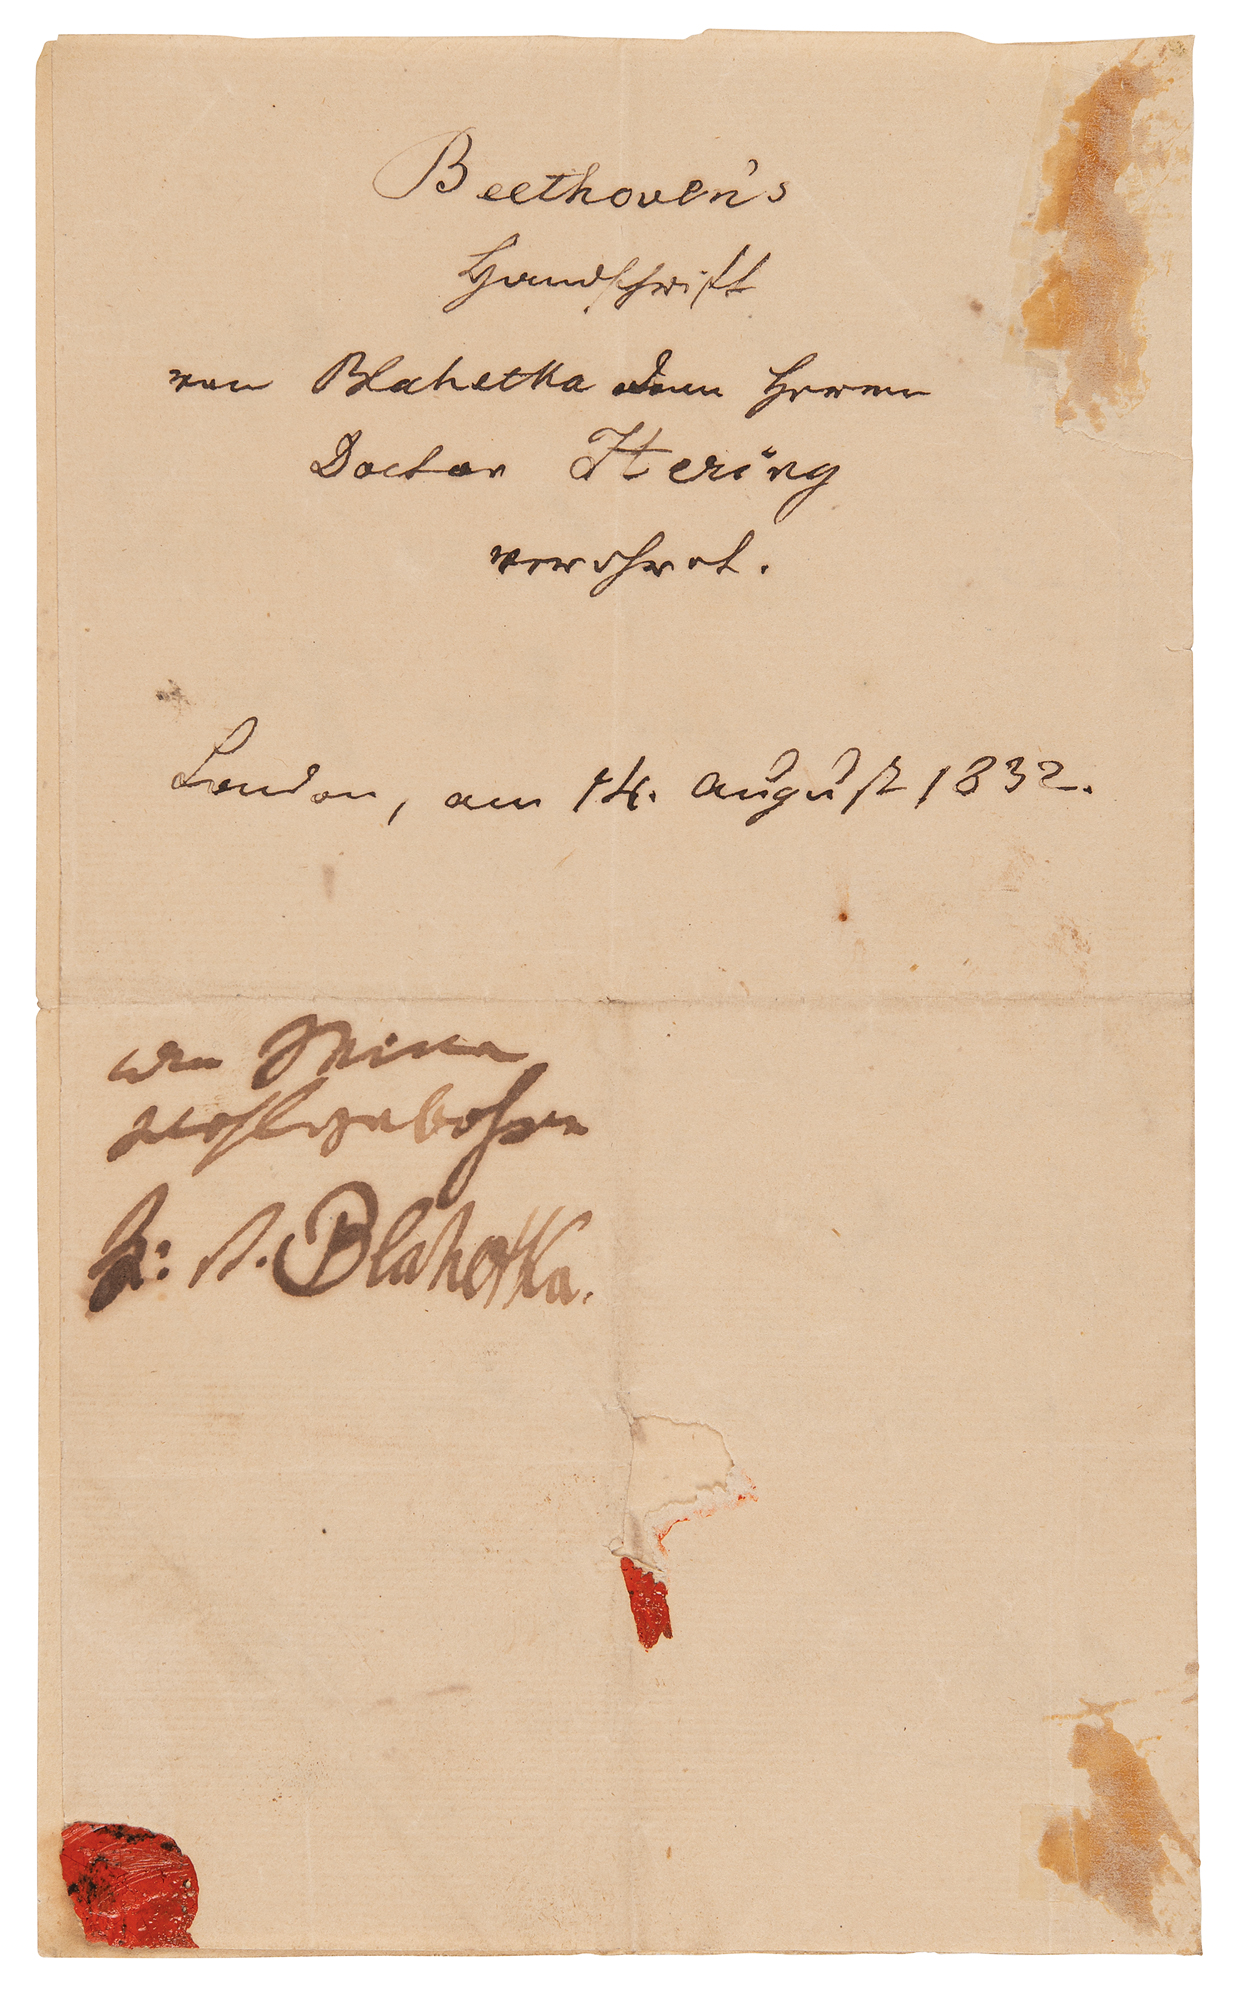 Beethoven's
Handschrift
von Blahetka dem Herrn
Doctor Hering
verehret.
London, am 14. August 1832.
An Seine
Wohlgebohrn
H: v. Blahetka.